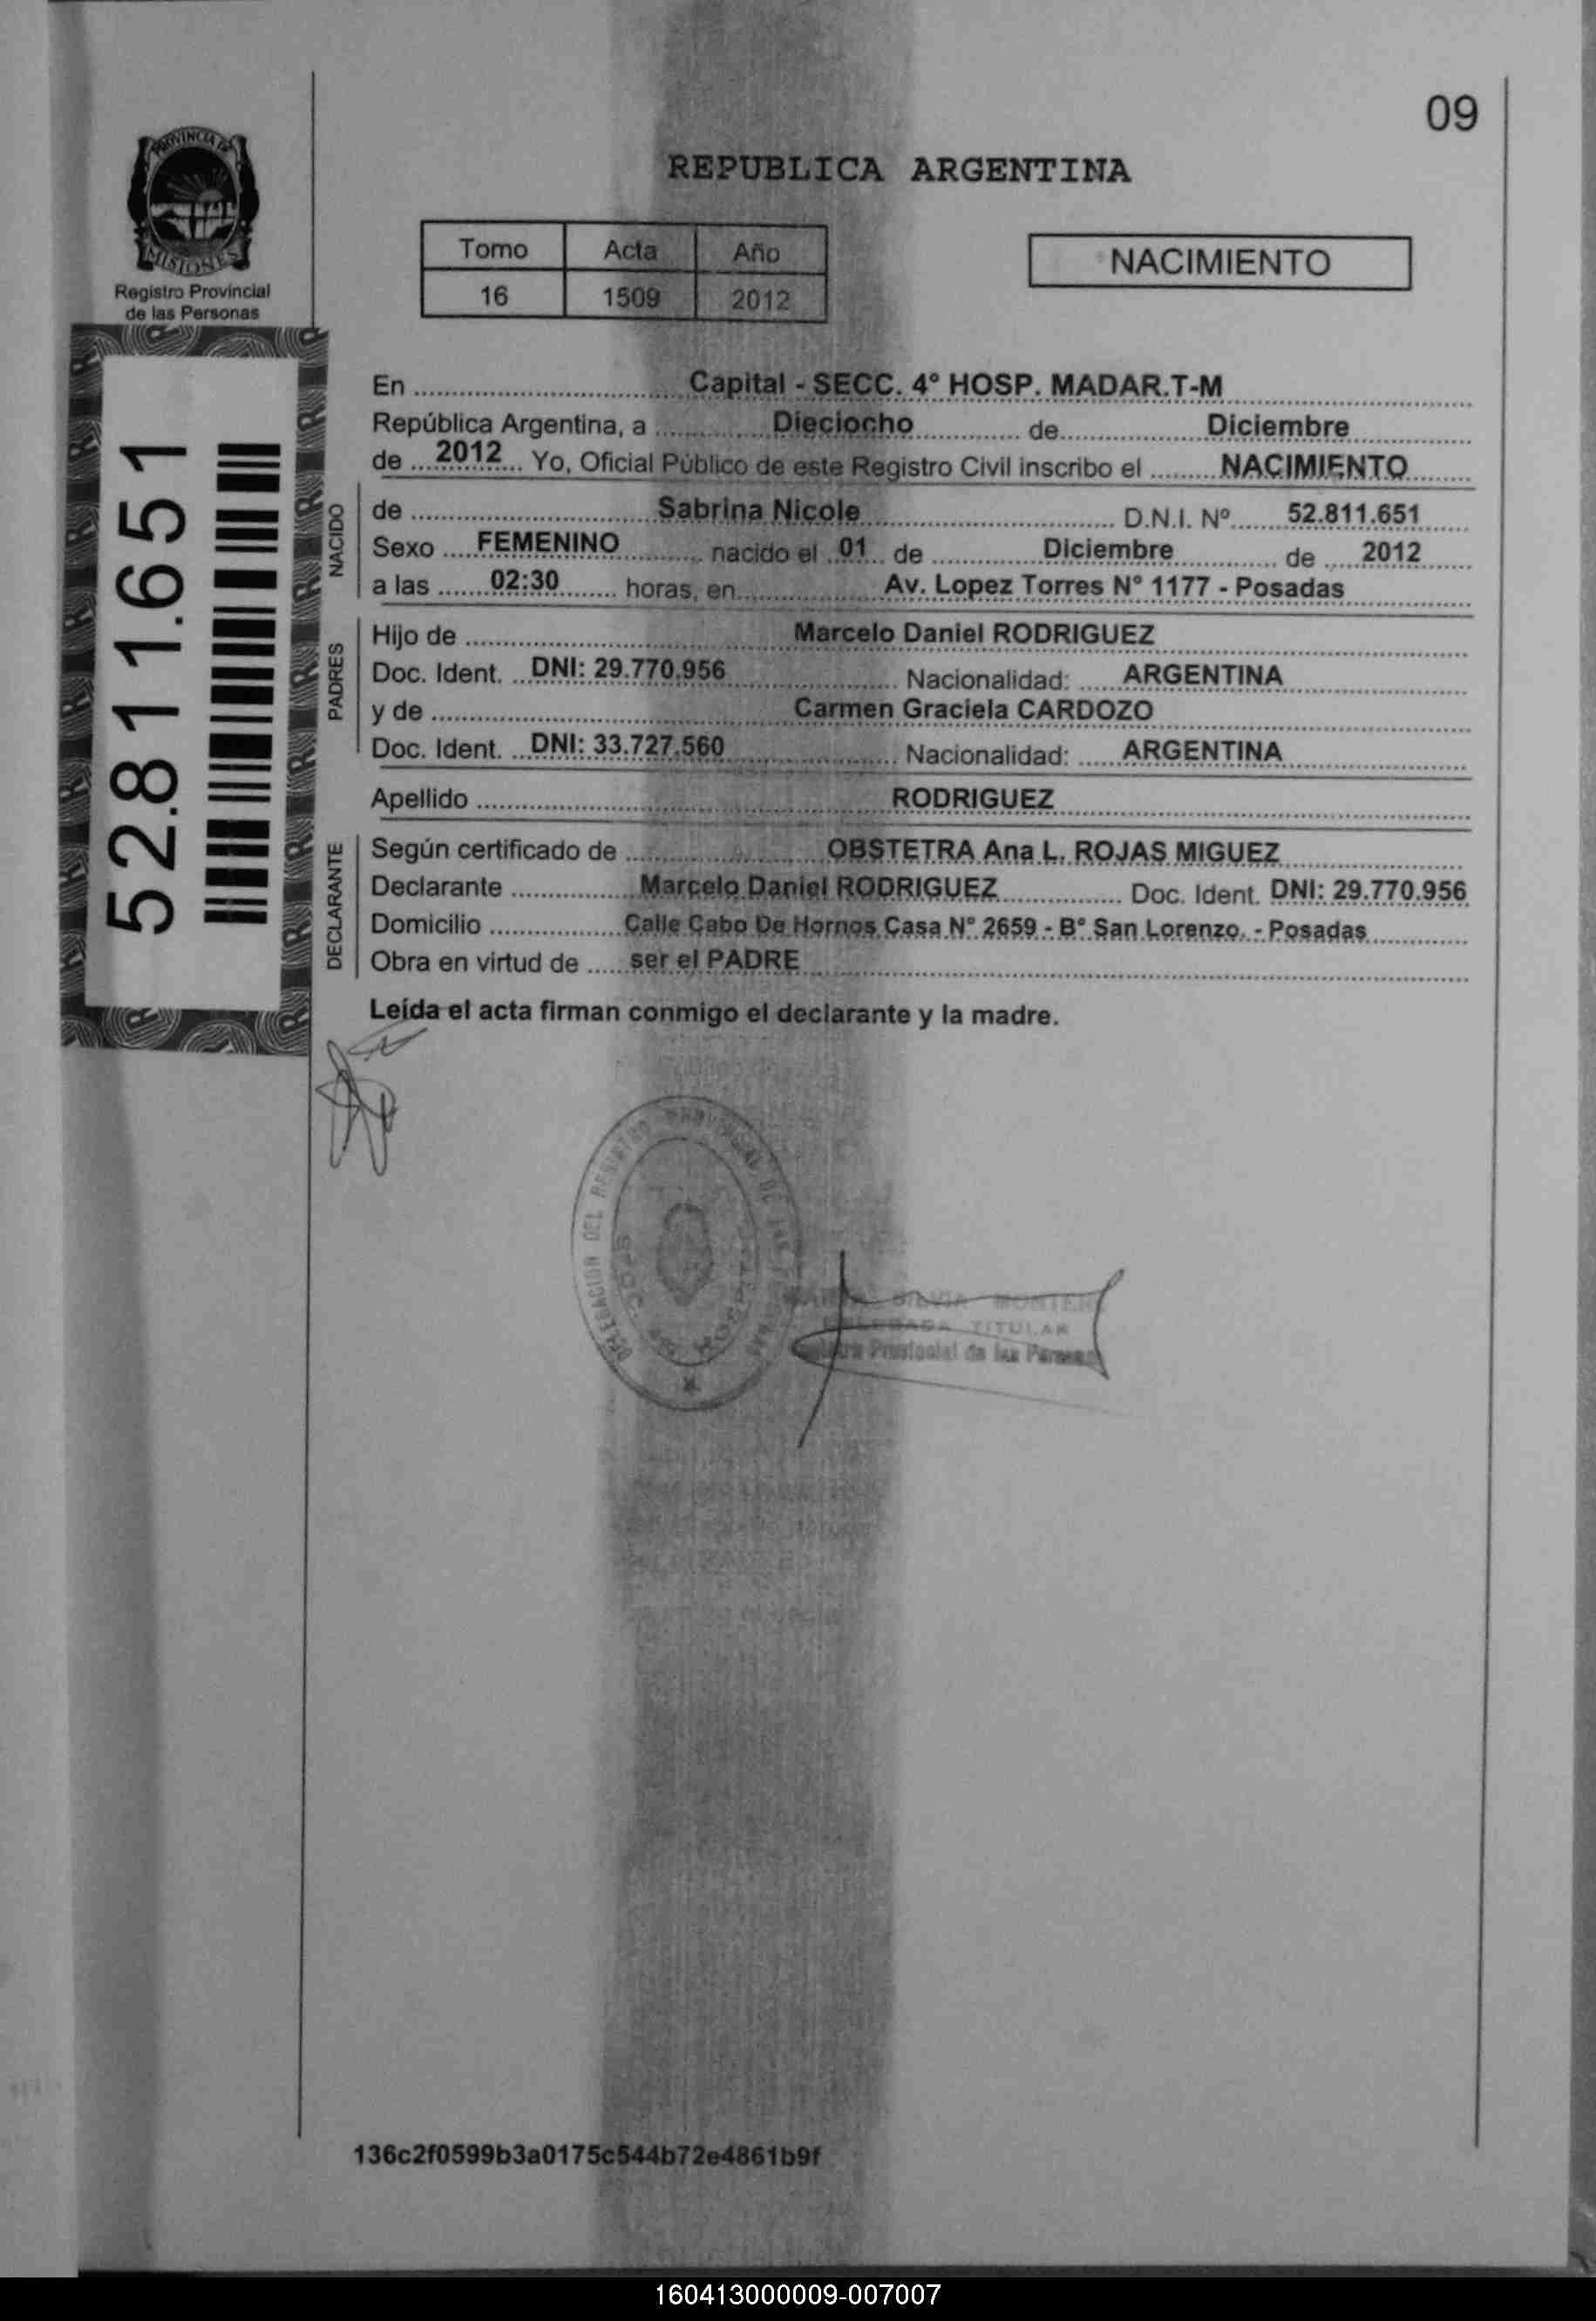 09
PROVINCIA DE
MISIONES
Registro Provincial
de las Personas
REPUBLICA ARGENTINA
Tomo Acta Año
16 1509 2012
NACIMIENTO
52.811.651
En Capital - SECC. 4° HOSP. MADAR.T-M
República Argentina, a Dieciocho de Diciembre
de 2012 Yo, Oficial Público de este Registro Civil inscribo el NACIMIENTO
NACIDO
de Sabrina Nicole D.N.I. Nº 52.811.651
Sexo FEMENINO nacido el 01 de Diciembre de 2012
a las 02:30 horas, en Av. Lopez Torres N° 1177 - Posadas
PADRES
Hijo de Marcelo Daniel RODRIGUEZ
Doc. Ident. DNI: 29.770.956 Nacionalidad: ARGENTINA
y de Carmen Graciela CARDOZO
Doc. Ident. DNI: 33.727.560 Nacionalidad: ARGENTINA
Apellido RODRIGUEZ
DECLARANTE
Según certificado de OBSTETRA Ana L. ROJAS MIGUEZ
Declarante Marcelo Daniel RODRIGUEZ Doc. Ident. DNI: 29.770.956
Domicilio Calle Cabo De Hornos Casa N° 2659 - B° San Lorenzo. - Posadas
Obra en virtud de ser el PADRE
Leída el acta firman conmigo el declarante y la madre.
DELEGACION DEL REGISTRO PROVINCIAL DE
SILVIA
TITULAR
Provincial de las
136c2f0599b3a0175c544b72e4861b9f
160413000009-007007